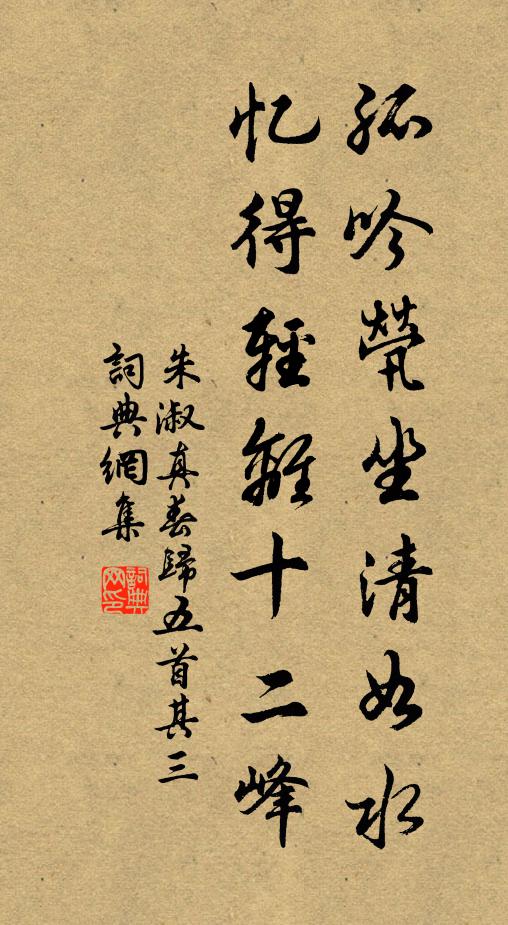 孤吟煢坐清如水
忆得輕離十二峰
朱淑真春歸五首其三
詞典網集
詞典网印